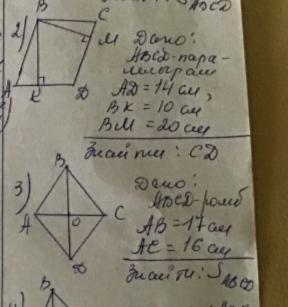 S ABCD
2) B C
M
A K D
Дано:
ABCD-пара-
лелограм
AD=14см,
BK=10см
BM=20см
Знайти: CD
3) B
A O C
D
Дано:
ABCD-ромб
AB=17см
AC=16см
Знайти: S ABCD
B